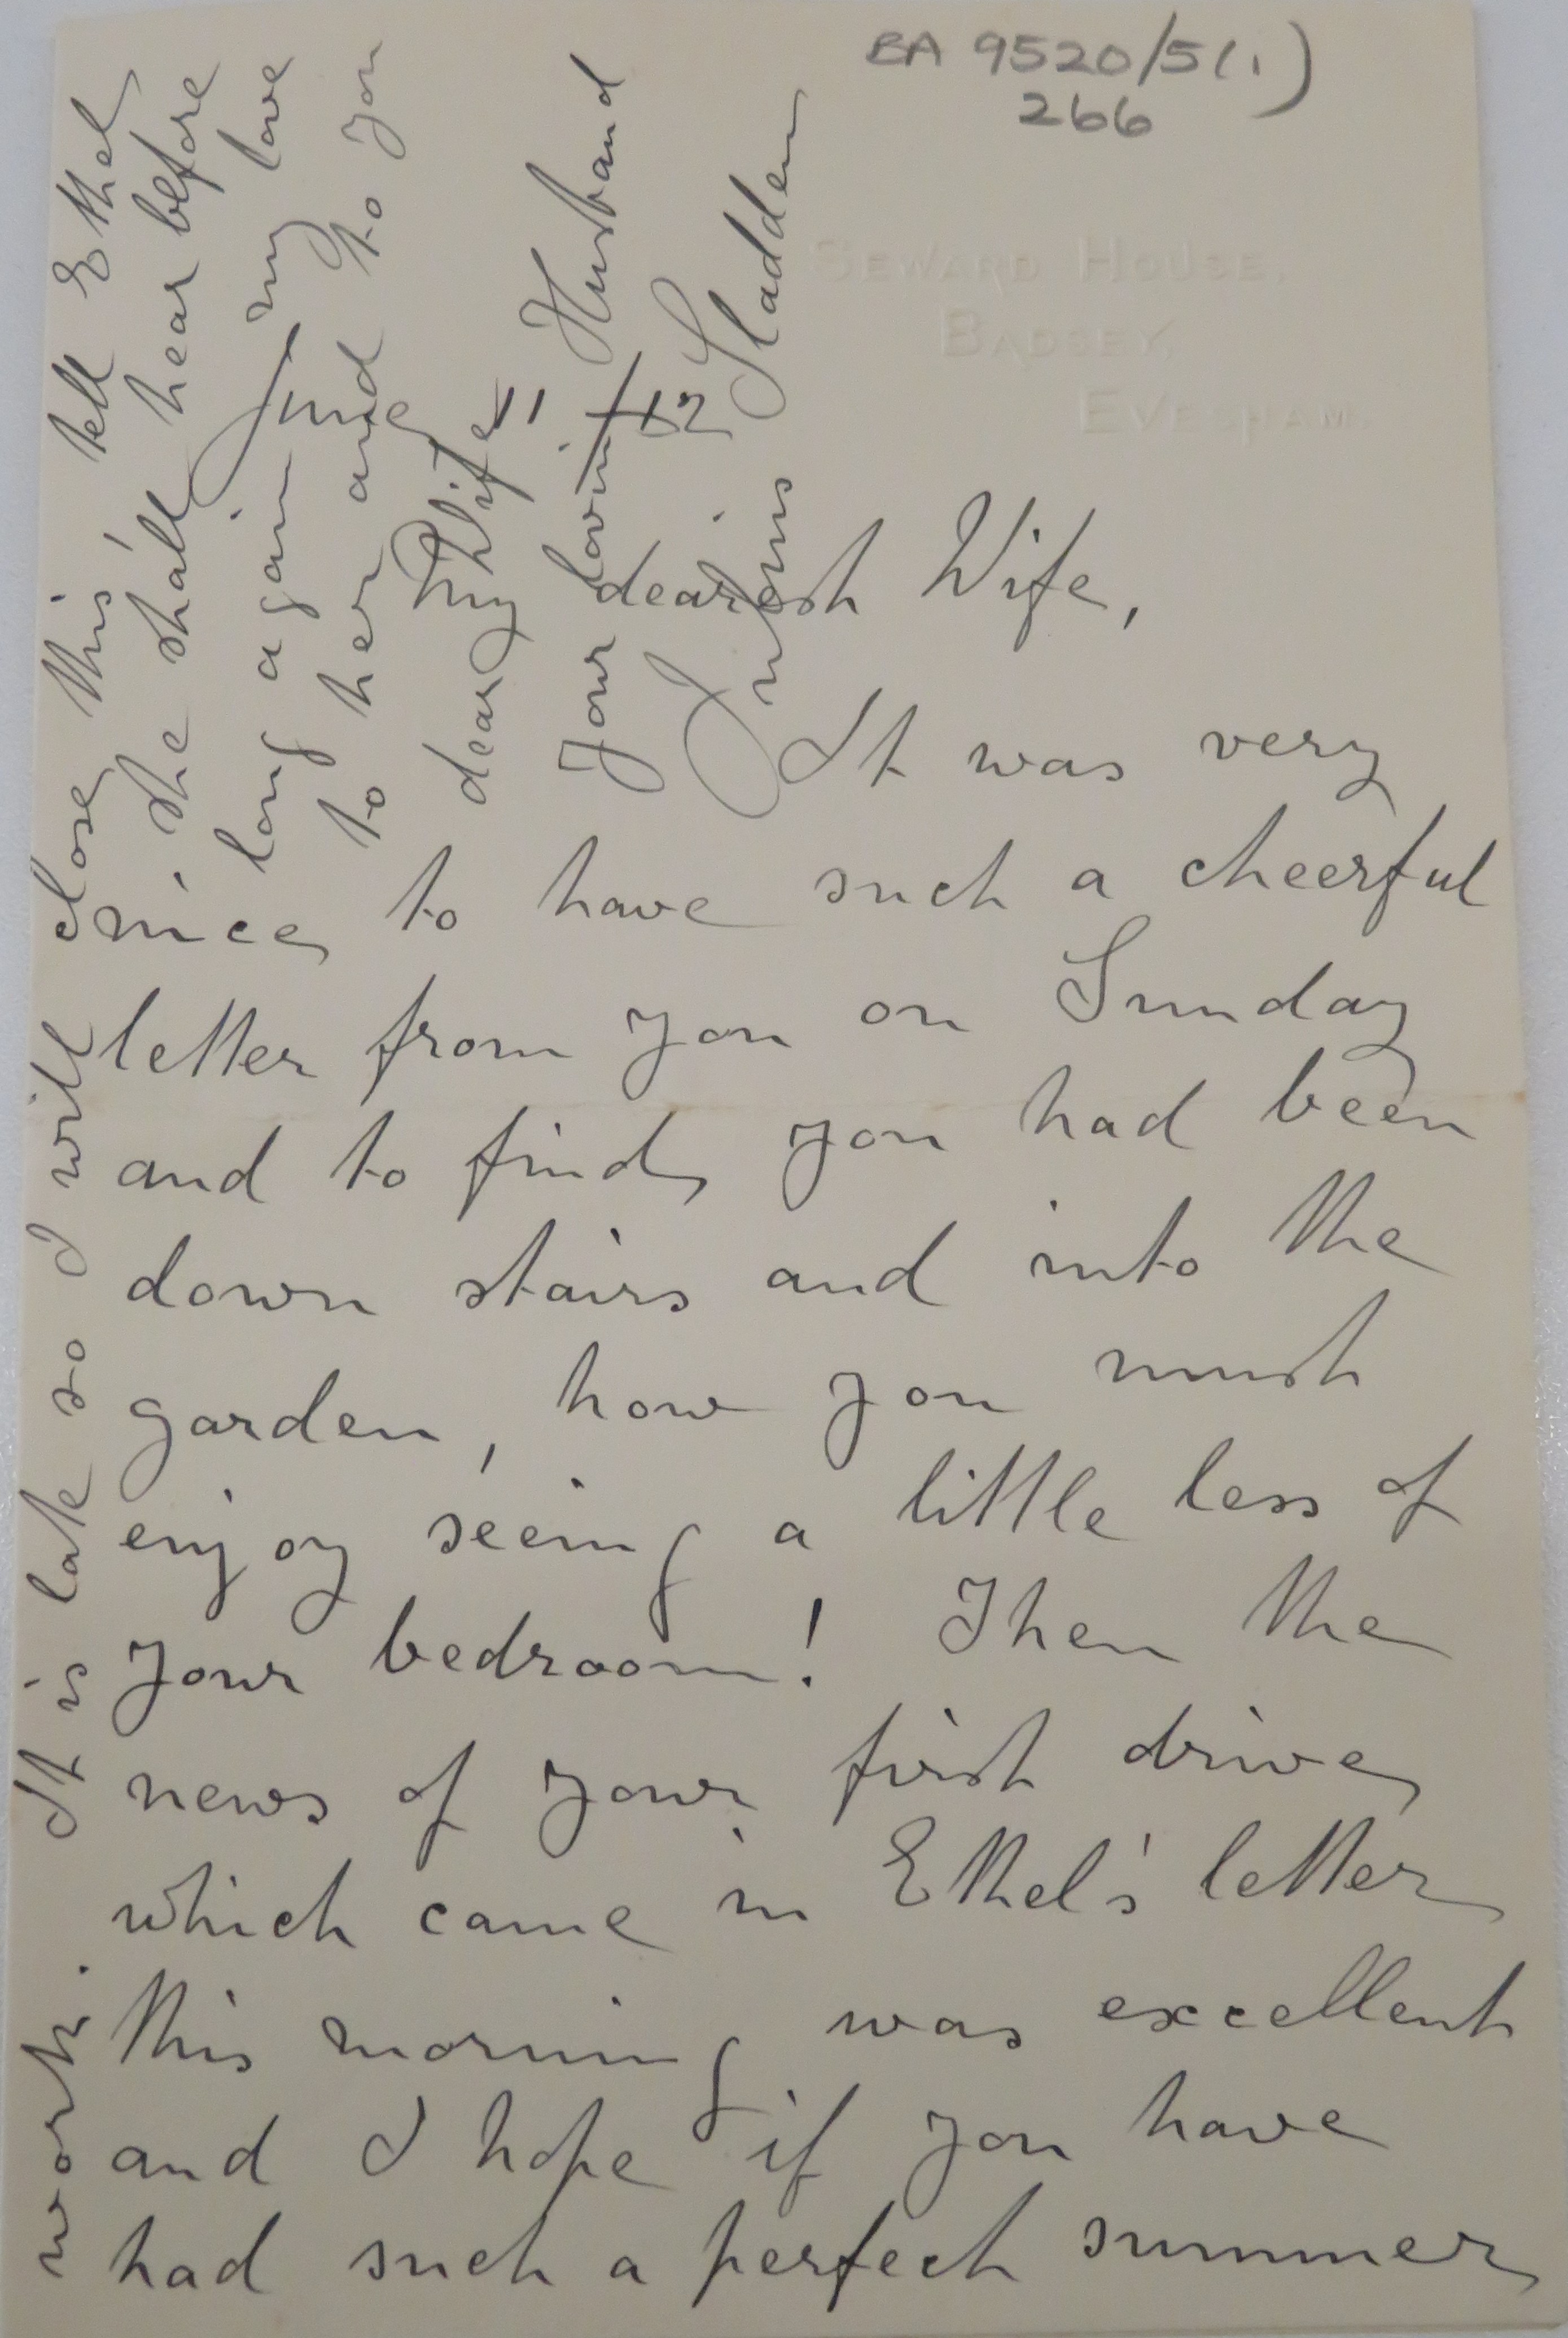 BA 9520/5(1)
266
SEWARD HOUSE,
BADSEY,
EVESHAM.
June 11 /12
My dearest Wife,
It was very
nice to have such a cheerful
letter from you on Sunday
and to find you had been
down stairs and into the
garden, how you must
enjoy seeing a little less of
your bedroom! Then the
news of your first drive
which came in Ethel's letter
this morning was excellent
and I hope if you have
had such a perfect summer
work. It is late so I will close this, tell Ethel
she shall hear before
long again my love
to her and to you
dear Wife
Your loving Husband
Julius Sladden